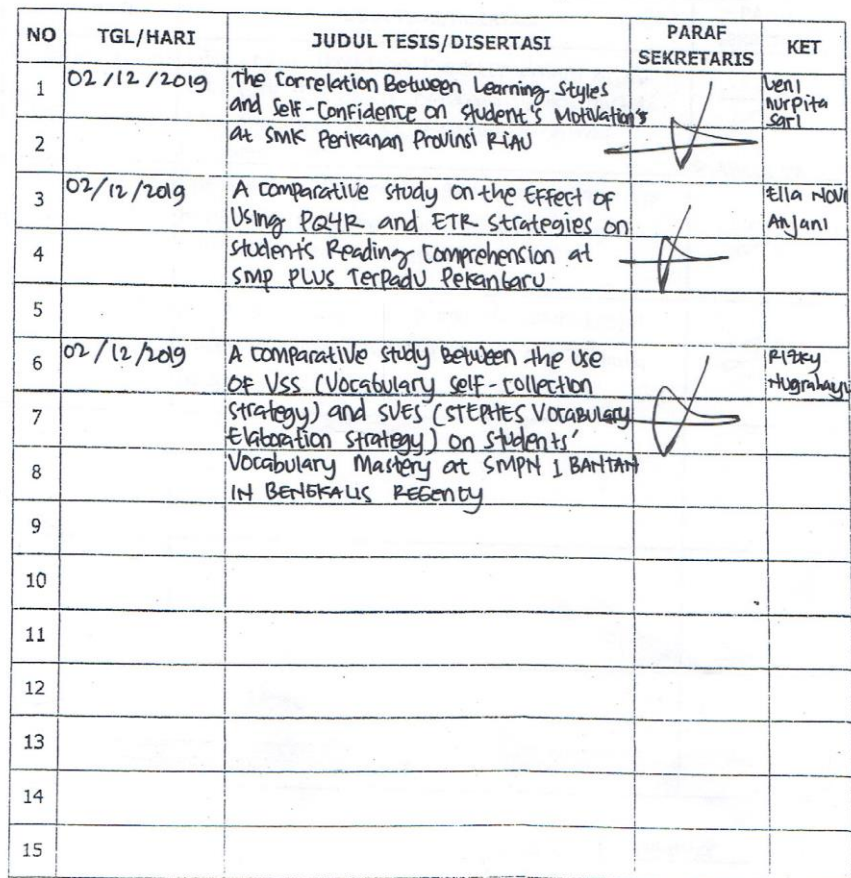 NO TGL/HARI JUDUL TESIS/DISERTASI PARAF SEKRETARIS KET
1 02/12/2019 The Correlation Between Learning Styles Leni
and Self-Confidence on Student's Motivation's Nurpita
2 at SMK Perikanan Provinsi RIAU Sari
3 02/12/2019 A Comparative Study on the Effect of Ella NOVI
Using PQ4R and ETR Strategies on Anjani
4 Student's Reading Comprehension at
SMP PLUS Terpadu Pekanbaru
5
6 02/12/2019 A Comparative Study Between the Use Rizky
OF VSS (Vocabulary Self-Collection Nugrahayu
7 Strategy) and SVES (STEPHES Vocabulary
Elaboration Strategy) on Students'
8 Vocabulary Mastery at SMPN 1 BANTAN
IN BENGKALIS REGENCY
9
10
11
12
13
14
15